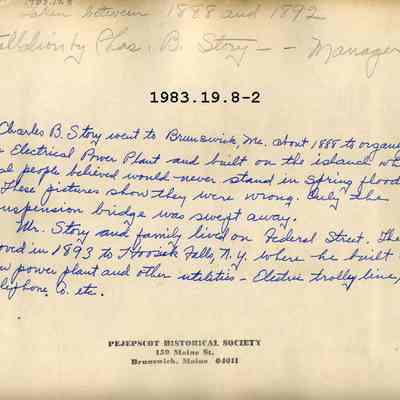 1983.19.8
taken between 1888 and 1892
by Chas. B. Story -- Manager
1983.19.8-2
Charles B. Story went to Brunswick, Me. about 1888 to organi
Electrical Power Plant and built on the island wh
people believed would never stand in Spring flood
These pictures show they were wrong. Only the
uspension bridge was swept away.
Mr. Story and family lived on Federal Street. The
oved in 1893 to Hoosick Falls, N.Y. where he built
w power plant and other utilities - Electric trolley line,
lephone Co. etc.
PEJEPSCOT HISTORICAL SOCIETY
159 Maine St.
Brunswick, Maine 04011